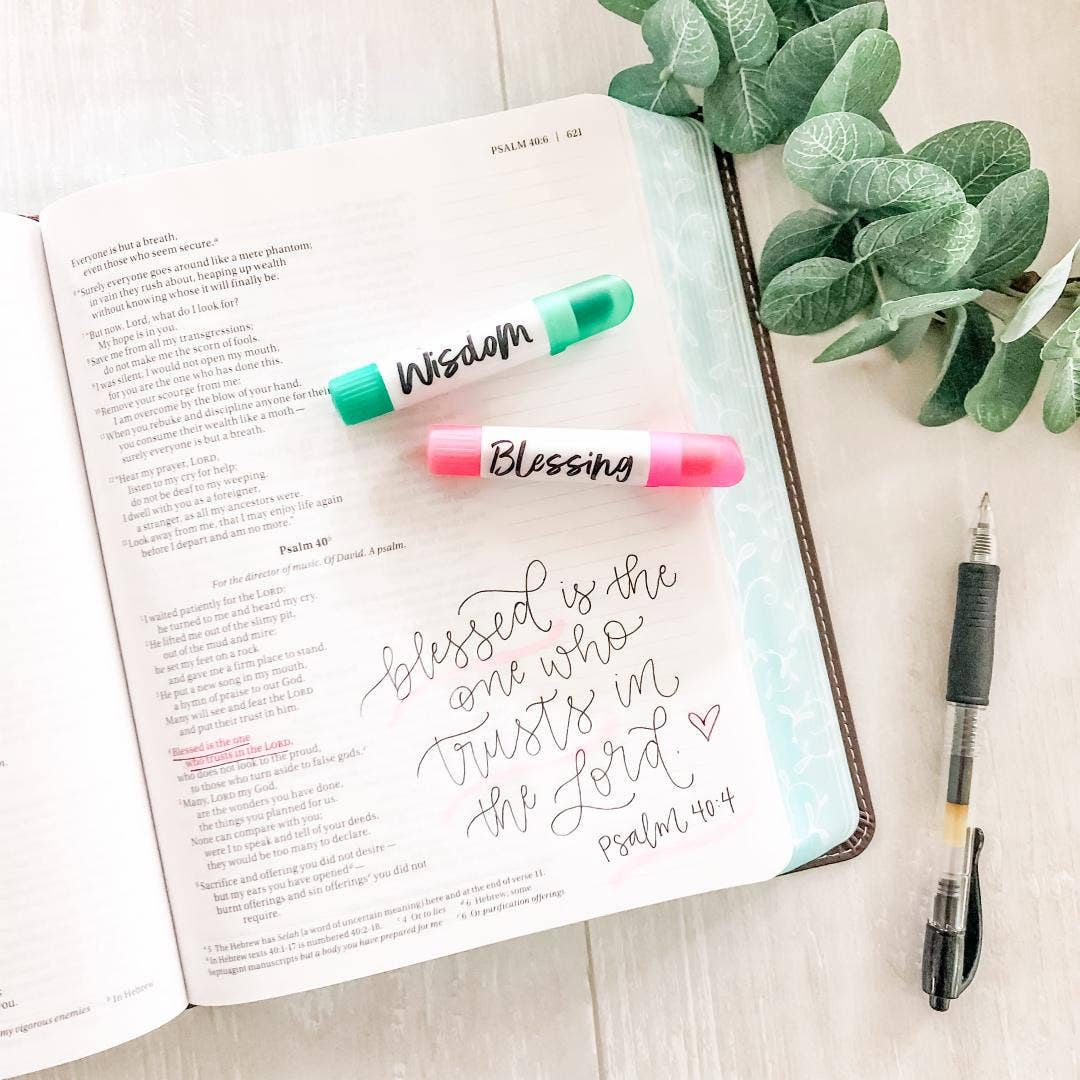 PSALM 40:6 | 621
Everyone is but a breath,
even those who seem secure.ᵃ
⁶"Surely everyone goes around like a mere phantom;
in vain they rush about, heaping up wealth
without knowing whose it will finally be.
⁷"But now, Lord, what do I look for?
My hope is in you.
⁸Save me from all my transgressions;
do not make me the scorn of fools.
⁹I was silent; I would not open my mouth,
for you are the one who has done this.
¹⁰Remove your scourge from me;
I am overcome by the blow of your hand.
¹¹When you rebuke and discipline anyone for their
you consume their wealth like a moth—
surely everyone is but a breath.
¹²"Hear my prayer, LORD,
listen to my cry for help;
do not be deaf to my weeping.
I dwell with you as a foreigner,
a stranger, as all my ancestors were.
¹³Look away from me, that I may enjoy life again
before I depart and am no more."
Psalm 40ᵇ
For the director of music. Of David. A psalm.
¹I waited patiently for the LORD;
he turned to me and heard my cry.
²He lifted me out of the slimy pit,
out of the mud and mire;
he set my feet on a rock
and gave me a firm place to stand.
³He put a new song in my mouth,
a hymn of praise to our God.
Many will see and fear the LORD
and put their trust in him.
⁴Blessed is the one
who trusts in the LORD,
who does not look to the proud,
to those who turn aside to false gods.ᶜ
⁵Many, LORD my God,
are the wonders you have done,
the things you planned for us.
None can compare with you;
were I to speak and tell of your deeds,
they would be too many to declare.
⁶Sacrifice and offering you did not desire—
but my ears you have openedᵈ—
burnt offerings and sin offeringsᵉ you did not
require.
ᵃ 5 The Hebrew has Selah (a word of uncertain meaning) here and at the end of verse 11.
ᵇ In Hebrew texts 40:1-17 is numbered 40:2-18. ᶜ 4 Or to lies ᵈ 6 Hebrew; some
Septuagint manuscripts but a body you have prepared for me ᵉ 6 Or purification offerings
Wisdom
Blessing
blessed is the
one who
trusts in
the Lord.
Psalm 40:4
you.
my vigorous enemies ᵇ In Hebrew